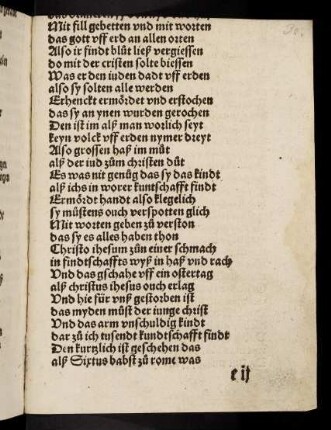 Mit fill gebetten vnd mit worten
das gott vff erd an allen orten
Also ir findt blůt ließ vergiessen
do mit der cristen solte biessen
Was er den iuden dadt vff erden
also sy solten alle werden
Erhenckt ermördet vnd erstochen
das sy an ynen wurden gerochen
Den ist im alß man worlich seyt
keyn volck vff erden nymer dreyt
Also grossen haß im můt
alß der iud zům christen důt
Es was nit genůg das sy das kindt
alß ichs in worer kuntschafft findt
Ermördt handt also klegelich
sy můstens ouch verspotten glich
Mit worten geben zů verston
das sy es alles haben thon
Christo ihesum zůn einer schmach
in findtschaffts wyß in haß vnd rach
Vnd das gschahe vff ein ostertag
alß christus ihesus ouch erlag
Vnd hie für vnß gestorben ist
das myden můst der iunge christ
Vnd das arm vnschuldig kindt
dar zů ich tusendt kundtschafft findt
Den kurtzlich ist geschehen das
alß Sixtus babst zů rome was
e ij